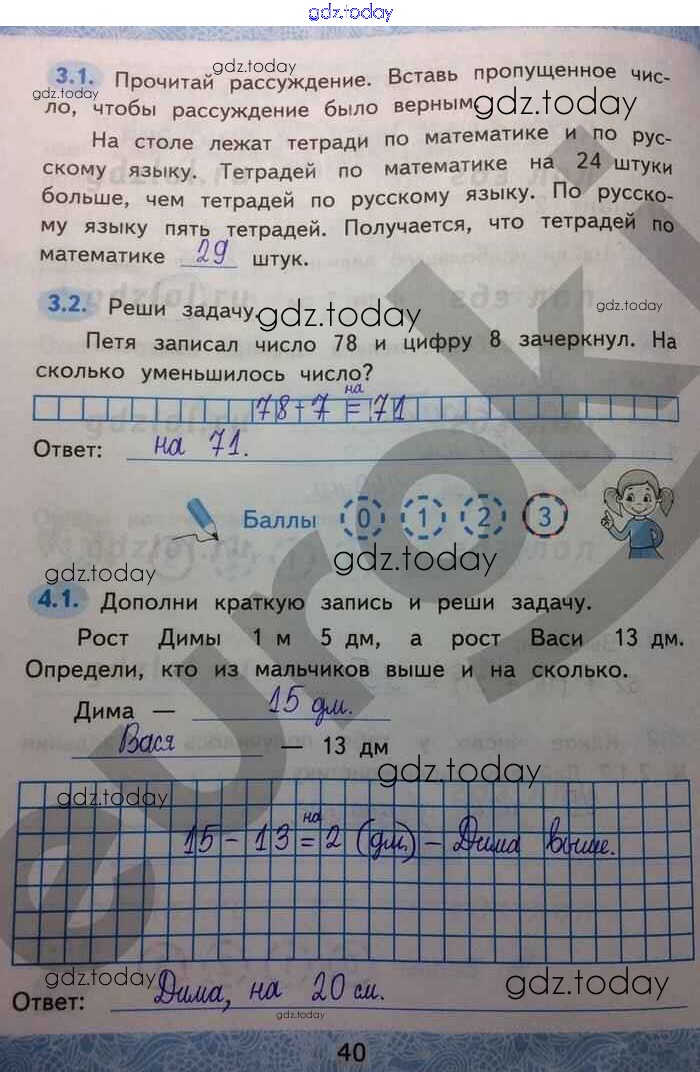 gdz.today
3.1. Прочитай рассуждение. Вставь пропущенное чис-
gdz.today
gdz.today
ло, чтобы рассуждение было верным.
gdz.today
На столе лежат тетради по математике и по рус-
скому языку. Тетрадей по математике на 24 штуки
больше, чем тетрадей по русскому языку. По русско-
му языку пять тетрадей. Получается, что тетрадей по
математике 29 штук.
3.2. Реши задачу.
gdz.today
gdz.today
Петя записал число 78 и цифру 8 зачеркнул. На
сколько уменьшилось число?
на
78-7=71
Ответ: на 71.
Баллы 0 1 2 3
gdz.today
gdz.today
4.1. Дополни краткую запись и реши задачу.
Рост Димы 1 м 5 дм, а рост Васи 13 дм.
Определи, кто из мальчиков выше и на сколько.
Дима — 15 дм.
Вася — 13 дм
gdz.today
gdz.today
на
15-13=2 (дм.) - Дима выше.
gdz.today
gdz.today
gdz.today
Ответ: Дима, на 20 см.
gdz.today
40
euroki